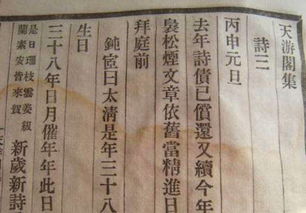 天游閣集
詩三
丙申元日
去年詩債已償還又續今年
裊松煙文章依舊當精進日
拜庭前
鈍宧曰太清是年三十八
生日
三十八年日月催年年此日
是日瓊枝雲姜綴
蘭素安皆來賀
新歲新詩